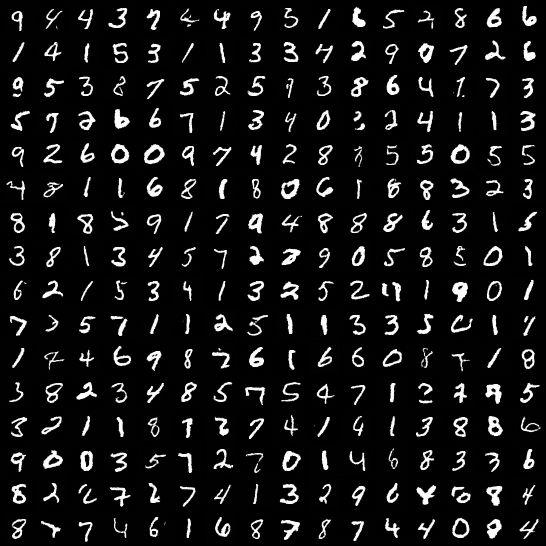 9 4 4 3 7 4 9 5 1 6 5 2 8 6 6
1 4 1 5 3 1 1 3 3 4 2 9 0 7 2 6
9 5 3 8 7 5 2 5 9 3 8 6 4 1 7 3
5 7 2 6 6 7 1 3 4 0 2 4 1 1 3
9 2 6 0 0 9 7 4 2 8 5 5 0 5 5
4 8 1 1 6 8 1 8 0 6 1 8 8 3 2 3
8 1 8 5 9 1 7 9 4 8 8 8 6 3 1 5
3 8 1 3 4 5 7 2 2 9 0 5 8 5 0 1
6 2 1 5 3 4 1 3 2 5 2 1 9 0 1
7 5 7 1 1 2 5 1 1 3 3 5 1 4
1 4 6 9 8 2 6 1 6 6 0 8 7 1 8
3 8 2 3 4 8 5 7 5 4 7 1 2 7 5
3 2 1 1 8 1 2 7 4 1 9 1 3 8 8 6
9 0 0 3 5 7 2 7 0 1 4 6 8 3 3 6
8 2 2 7 2 7 4 1 3 2 9 6 8 4
8 7 4 6 1 6 8 7 8 7 4 4 0 9 4